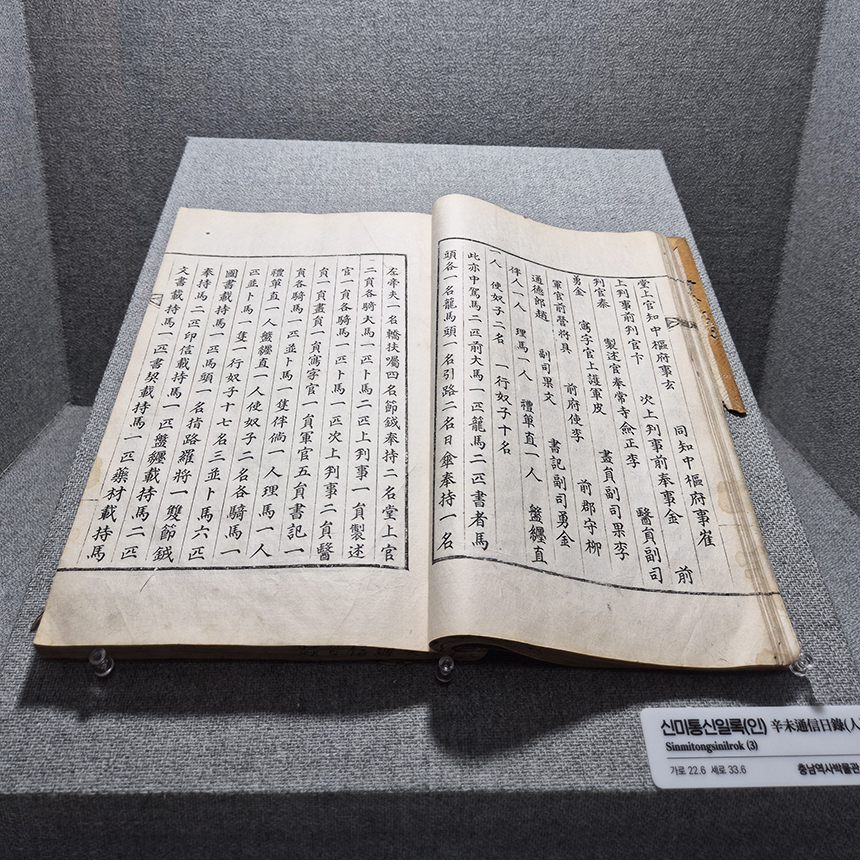 堂上官知中樞府事玄 同知中樞府事崔
上判事前判官卞 次上判事前奉事金 前
判官秦 製述官奉常寺僉正李 醫員副司
勇金 寫字官上護軍皮 畫員副司果李
軍官前營將具 前府使李 前郡守柳
通德郎趙 副司果文 書記副司勇金
伴人一人 理馬一人 禮單直一人 盤纏直
一人 使奴子二名 一行奴子十名
此亦中駕馬二匹前大馬一匹龍馬二匹書者馬
頭各一名龍馬頭一名引路二名日傘奉持一名
左帝夫一名轎扶囑四名節鉞奉持二名堂上官
二員各騎大馬一匹卜馬二匹上判事一員製述
官一員各騎馬一匹卜馬一匹次上判事二員醫
員一員畫員一員寫字官一員軍官五員書記一
員各騎馬一匹並卜馬一隻伴倘一人理馬一人
禮單直一人盤纏直一人使奴子二名各騎馬一
匹並卜馬一隻一行奴子十七名三並卜馬六匹
圖書載持馬一匹印信載持馬一匹節鉞
奉持馬二匹馬頭一名指路羅將一雙節鉞
文書載持馬一匹書契載持馬一匹藥材載持馬
신미통신일록(인) 辛未通信日錄(人
Sinmitongsinilrok (3)
가로 22.6 세로 33.6
충남역사박물관